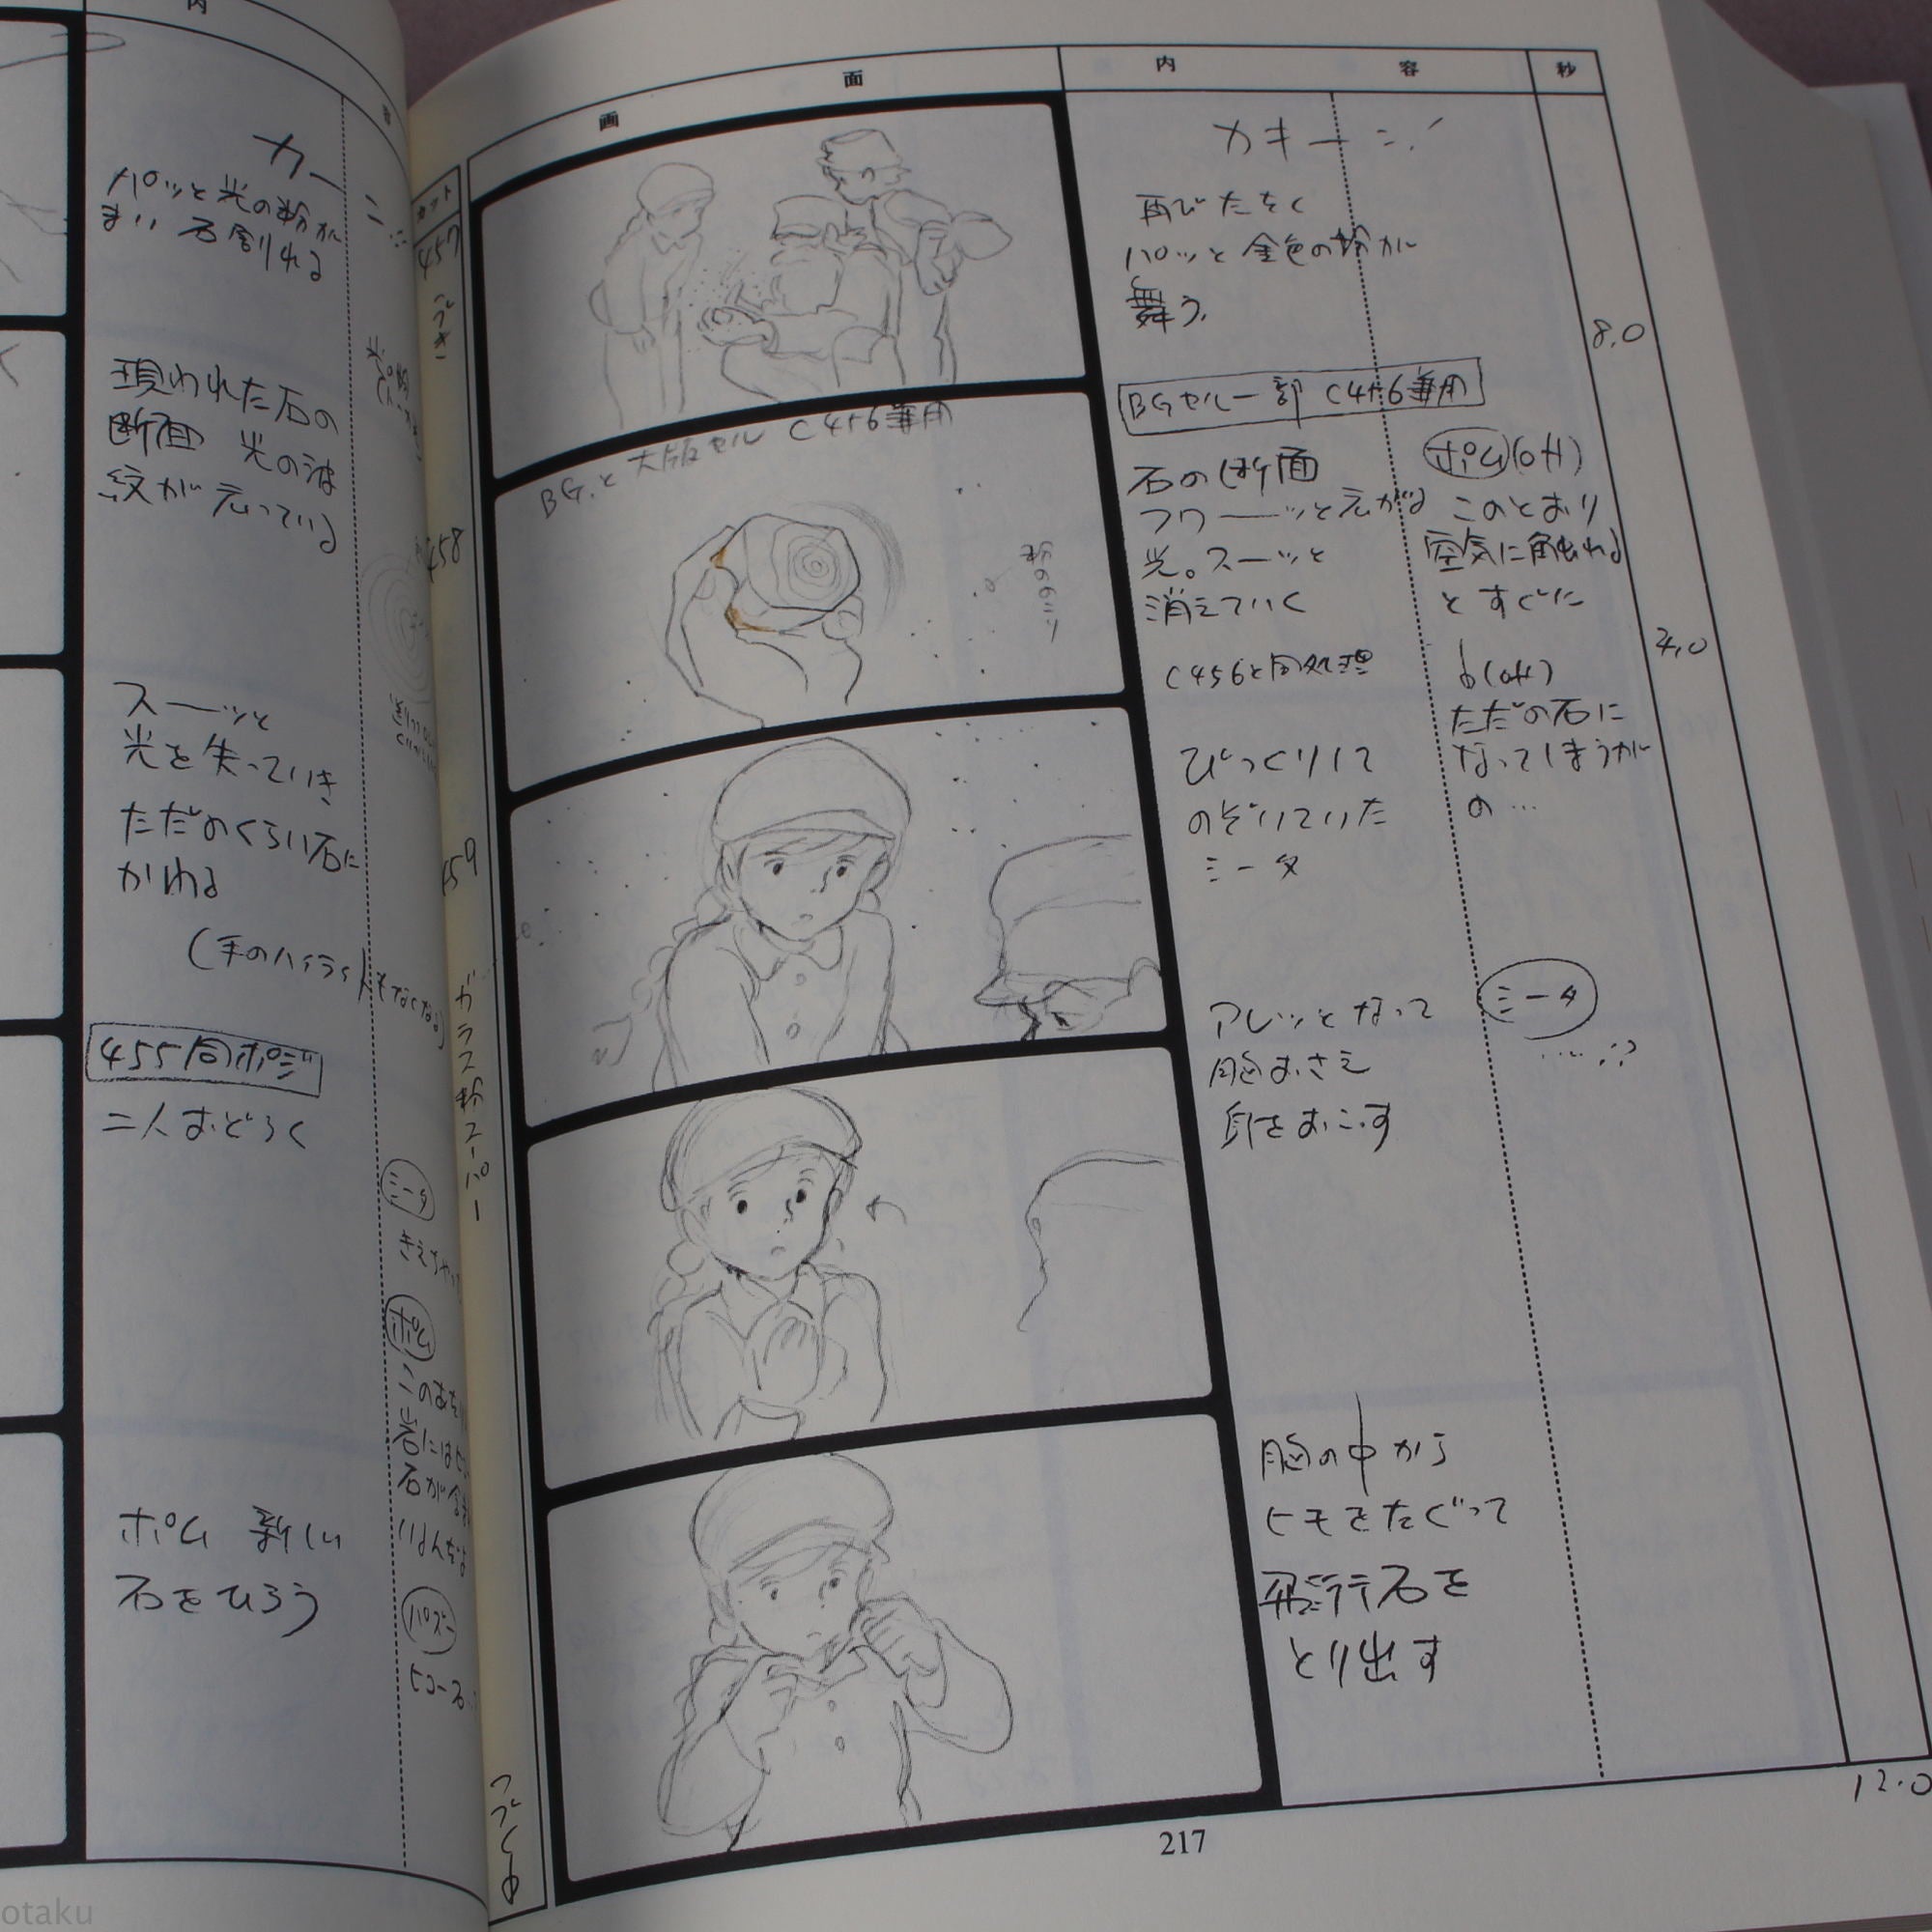 内
容
カーン
パッと光の粉が
まい 石割れる
現われた石の
断面 光の波
紋が
スーッと
光を失っていき
ただのくらい石に
かわる
(手のハイライトもなくなる)
455同ポジ
二人おどろく
ミータ
ポム
パズー
ポム 新しい
石をひろう
カット
画
面
内
容
秒
457
つづき
カキーン!
再びたたく
パッと金色の粉が
舞う
8.0
BGセル一部 C456兼用
458
BG.と大版セル C456兼用
石の断面
フワーッと
光。スーッと
消えていく
C456と同処理
ポム(off)
このとおり
空気に触れる
とすぐに
(off)
ただの石に
なってしまうが
の…
4.0
459
ガラス粉スーパー
びっくりして
のぞいていた
ミータ
アレッとなって
胸おさえ
身をおこす
ミータ
……?
胸の中から
ヒモをたぐって
飛行石を
とり出す
つづく
12.0
217
otaku